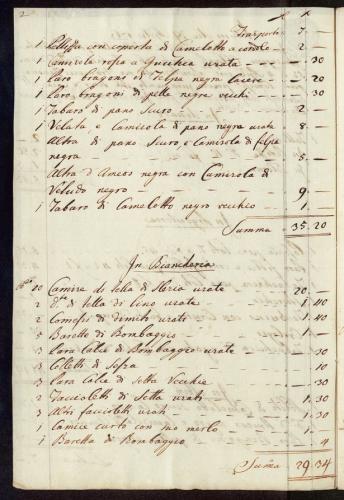 2
Trasporto 7 —
1 Pelliza con coperta di Camelotto a cordle 2 —
1 Camisola rossa a Gucchia urata — 30
1 Paro bragoni di Felpa negra lacere — 20
1 Paro bragoni di pelle negre vecchi — 30
1 Tabaro di pano Scuro 2 —
1 Velata e Camisola di pano negra urata 8 —
1 Altra di pano Scuro, e Camisola di felpa
negra 5 —
1 Altra d'Amoes negra con Camisola di
Veludo negro 9 —
1 Tabaro di Camelotto negro vecchio 1 —
Summa 35. 20
In Biancheria
10 Camise di tella di urate 20 —
2 dte di tella di lino urate 1. 40
2 di dimiti urati 1. 40
5 Barette di Bombaggio 1 —
3 Para Calce di Bombaggio urate — 30
3 Colletti di — 10
3 Para Calce di Setta Vecchie — 30
2 Faccioletti di Setta urati 1. 30
3 Altri faccioletti urati 1. 30
1 Camice curto con suo merlo 1. —
1 Baretta di Bombaggio — 4
Suma 29. 34